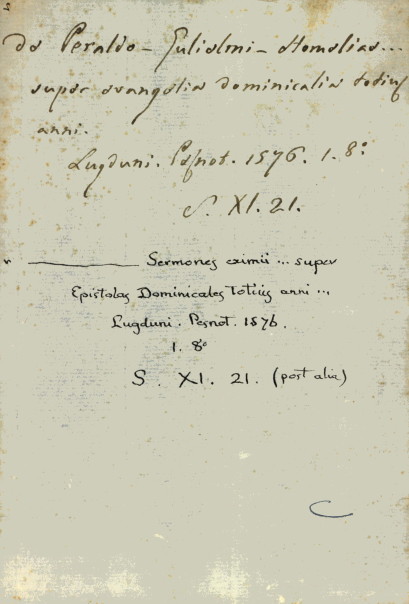 de Peraldo - Gulielmi - Homeliae...
super evangelia dominicalia totius
anni.
Lugduni. Pesnot. 1576. 1. 8º
S. XI. 21.
Sermones eximii ... super
Epistolas Dominicales Totius anni ...
Lugduni. Pesnot. 1576.
1. 8º
S. XI. 21. (post alia)
C